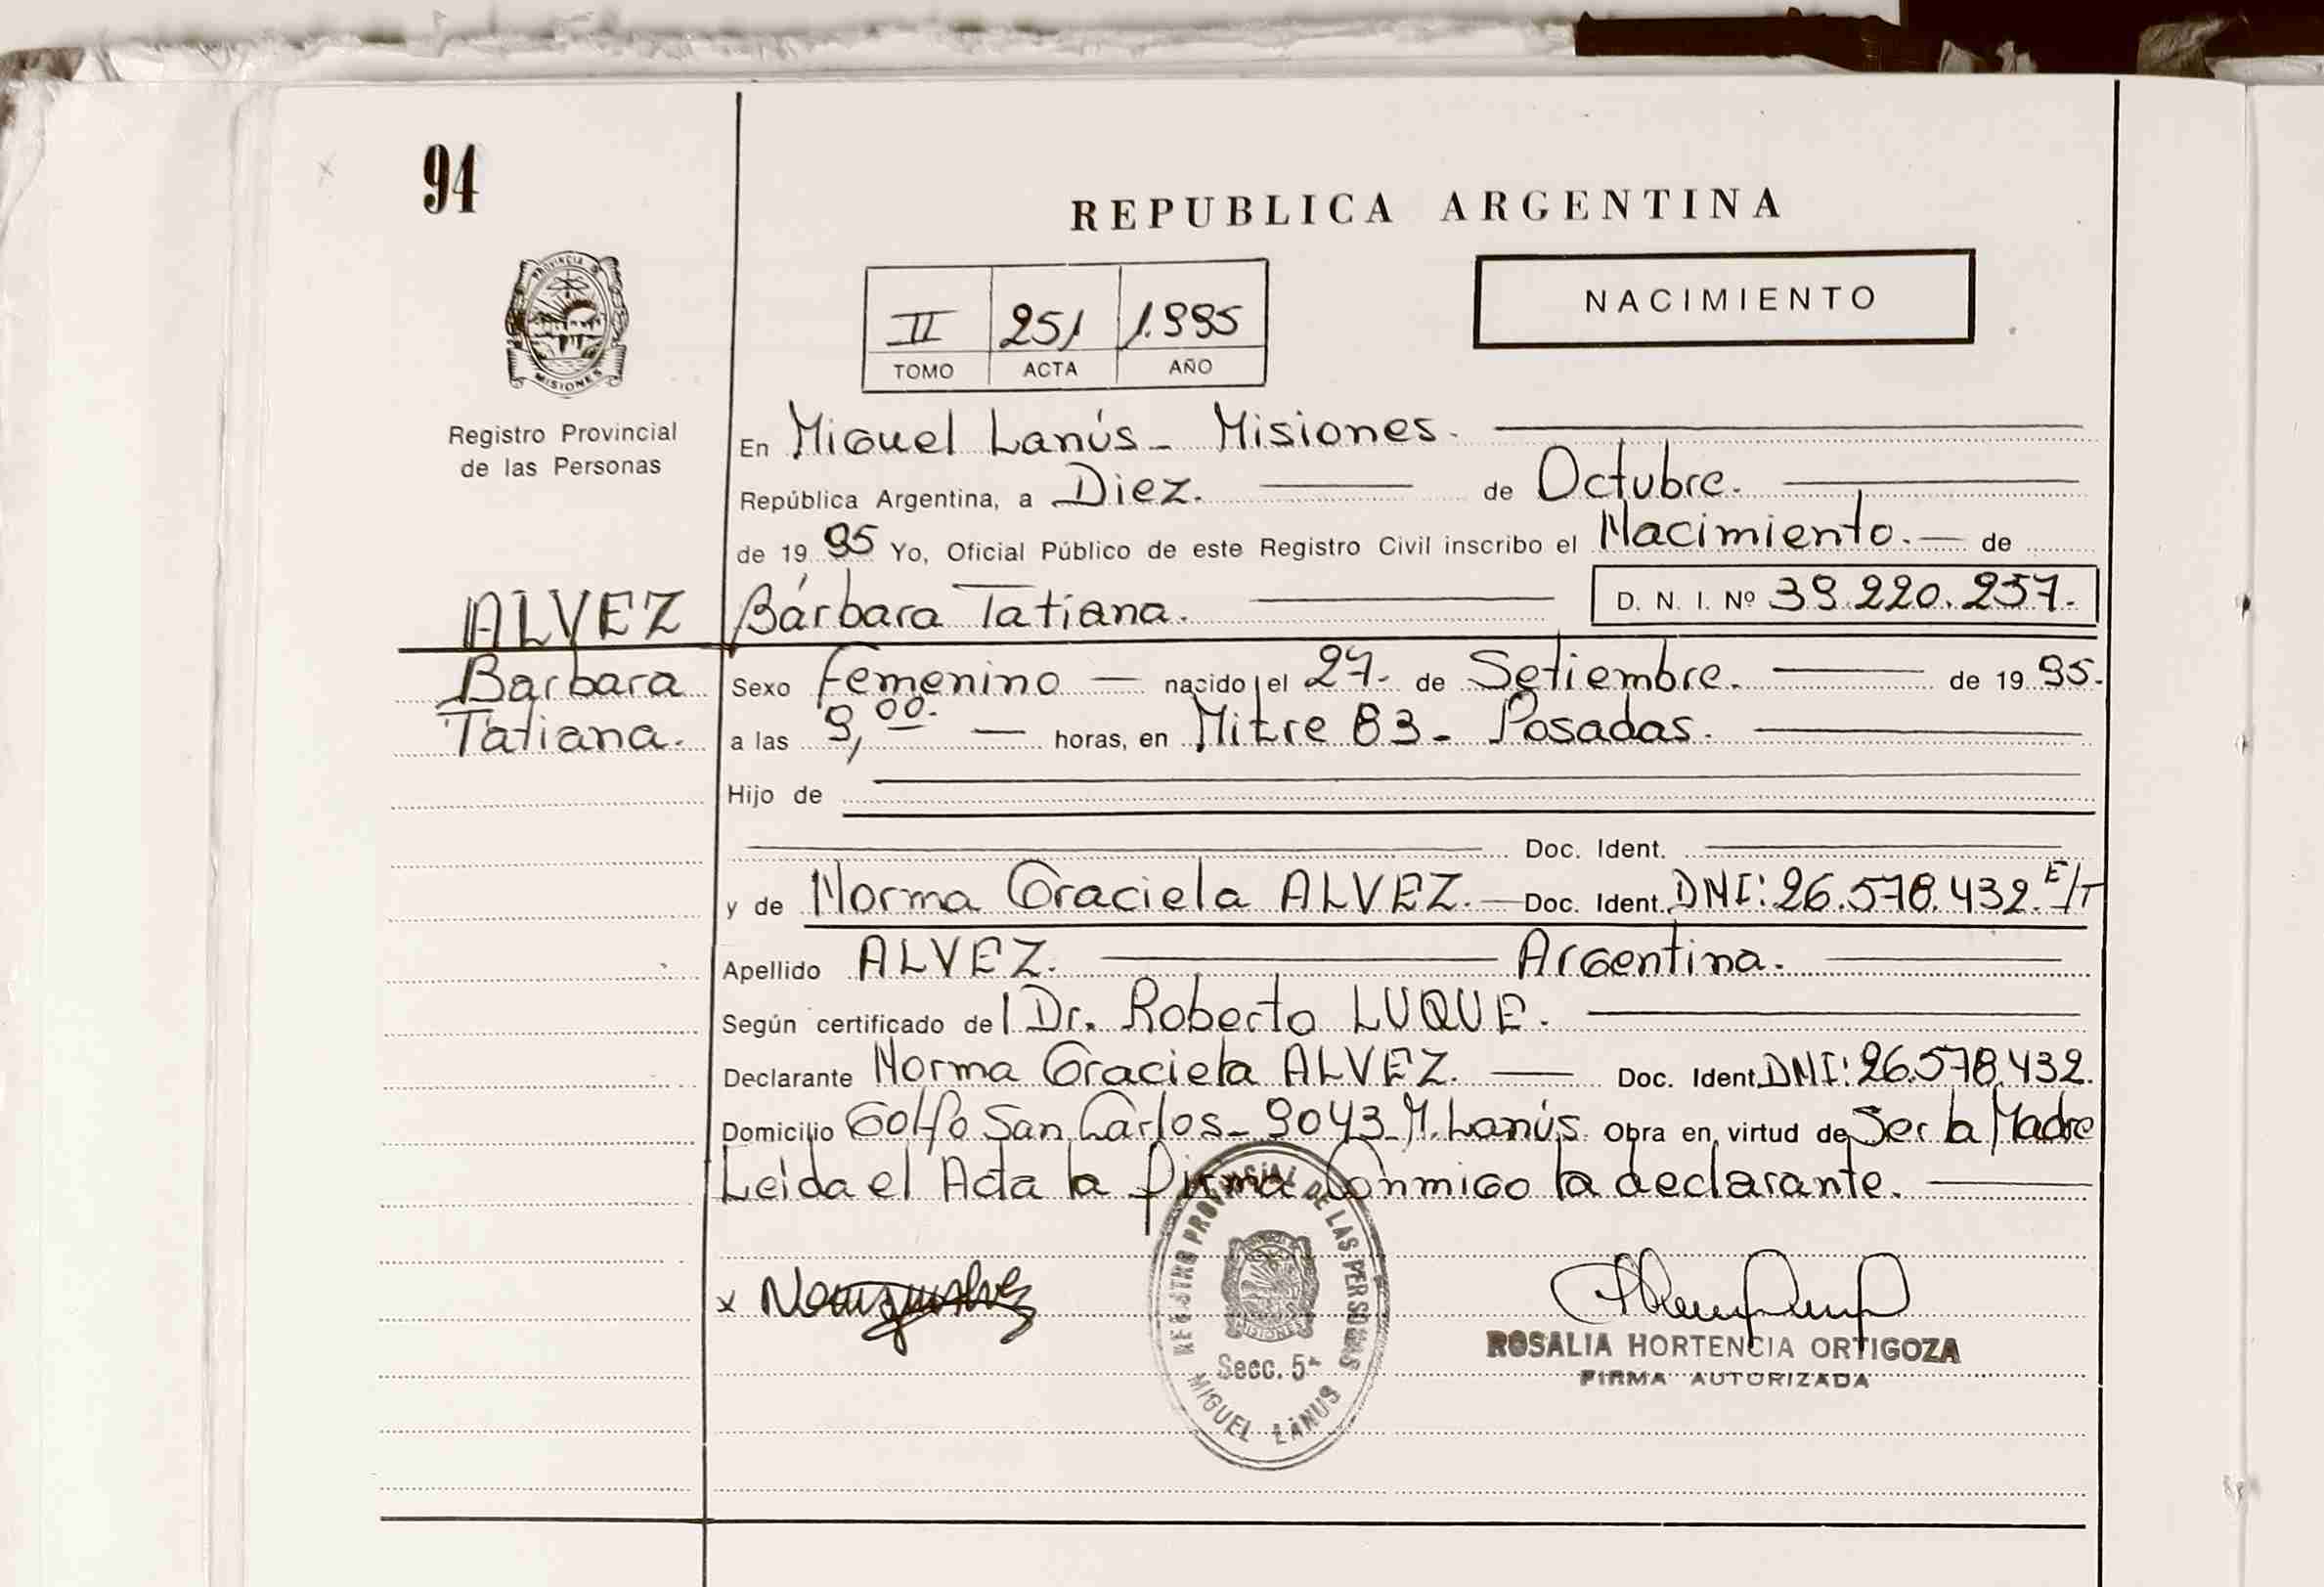 94
REPUBLICA ARGENTINA
NACIMIENTO
II 251 1.995
TOMO ACTA AÑO
PROVINCIA DE
MISIONES
Registro Provincial
de las Personas
En Miguel Lanús - Misiones.
República Argentina, a Diez. de Octubre.
de 19 95 Yo, Oficial Público de este Registro Civil inscribo el Nacimiento. de
ALVEZ
Barbara
Tatiana.
Bárbara Tatiana. D. N. I. Nº 39.220.257.
Sexo Femenino nacido el 27. de Setiembre. de 19 95.
a las 9,00. horas, en Mitre 83 - Posadas.
Hijo de
Doc. Ident.
y de Norma Graciela ALVEZ. Doc. Ident. DNI: 26.578.432. E/T
Apellido ALVEZ. Argentina.
Según certificado del Dr. Roberto LUQUE.
Declarante Norma Graciela ALVEZ. Doc. Ident. DNI: 26.578.432.
Domicilio Golfo San Carlos - 9043 - M. Lanús. Obra en virtud de Ser la Madre
Leida el Acta la firma Conmigo la declarante.
REGISTRO PROVINCIAL DE LAS PERSONAS
MISIONES
Secc. 5ª
MIGUEL LANUS
x
ROSALIA HORTENCIA ORTIGOZA
FIRMA AUTORIZADA